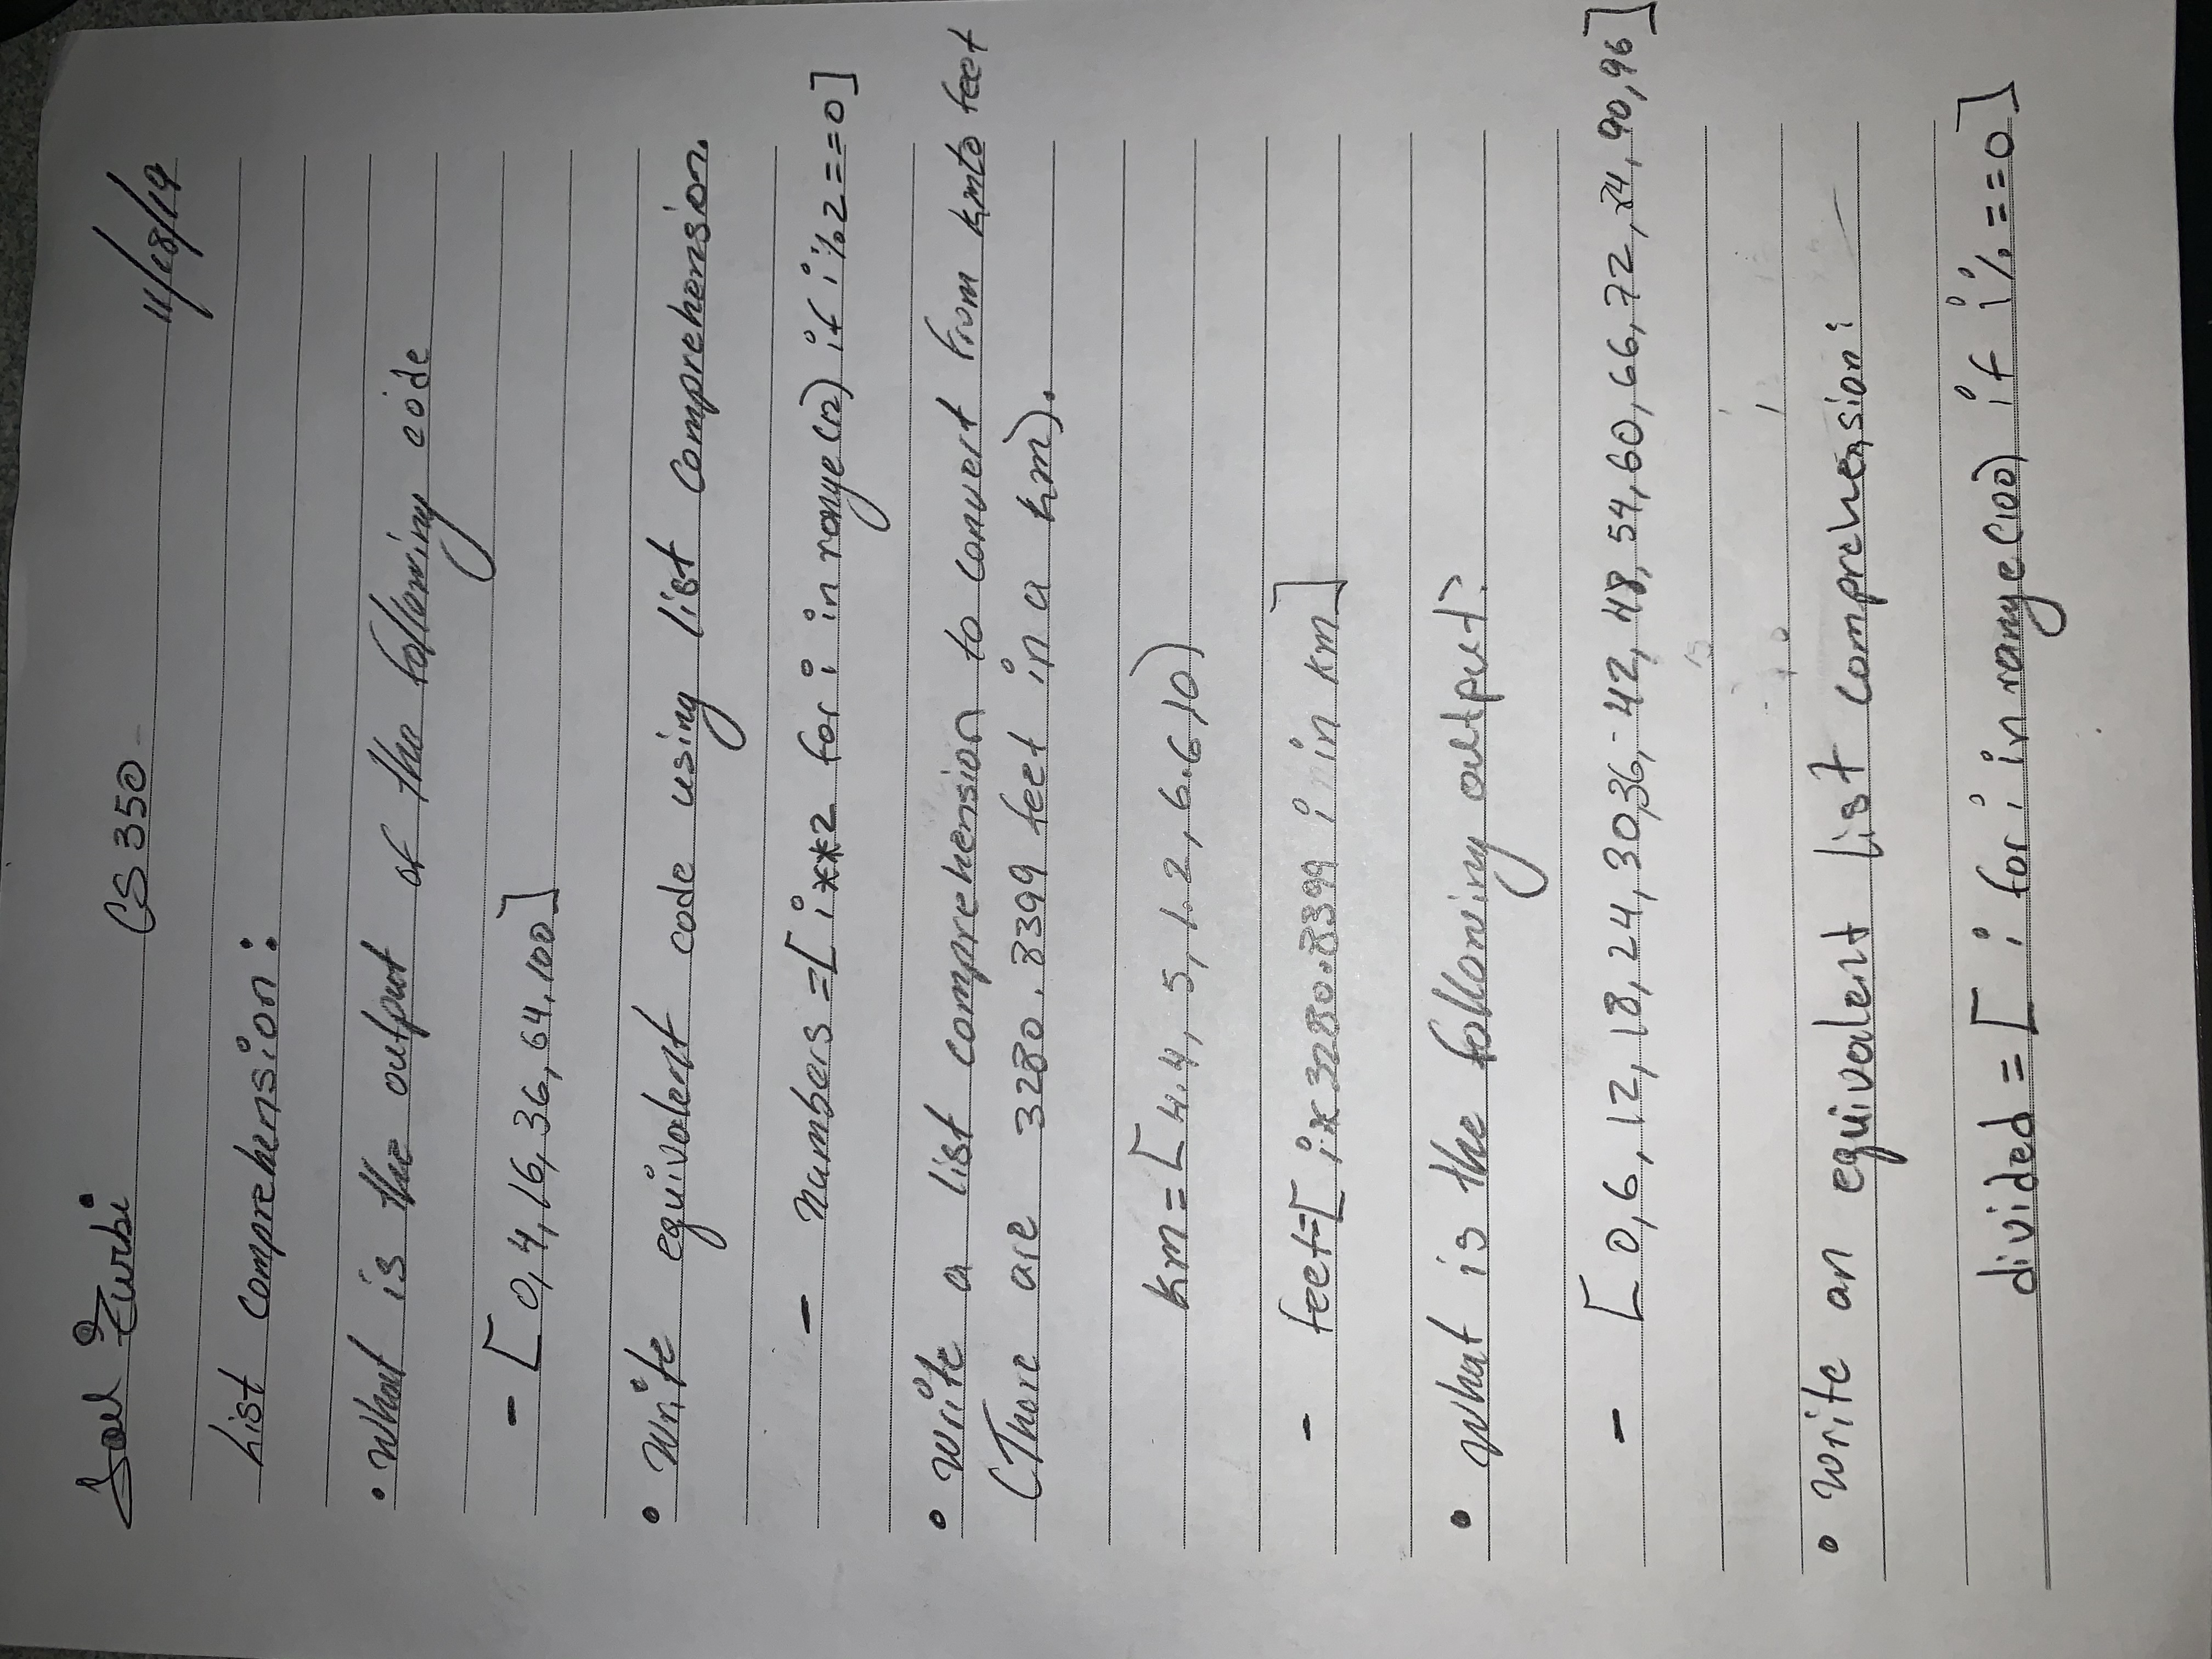 Joel Turbi CS 350 11/18/19
List comprehension:
• What is the output of the following code
- [0, 4, 16, 36, 64, 100]
• Write equivalent code using list comprehension.
- numbers = [i**2 for i in range(12) if i%2==0]
• Write a list comprehension to convert from km to feet
(There are 3280.8399 feet in a km).
km = [4.4, 5, 1.2, 6.6, 10)
- feet=[ i*3280.8399 i in km]
• What is the following output?
- [0, 6, 12, 18, 24, 30, 36, 42, 48, 54, 60, 66, 72, 84, 90, 96]
• Write an equivalent list comprehension:
divided = [ i for i in range(100) if i%==0]